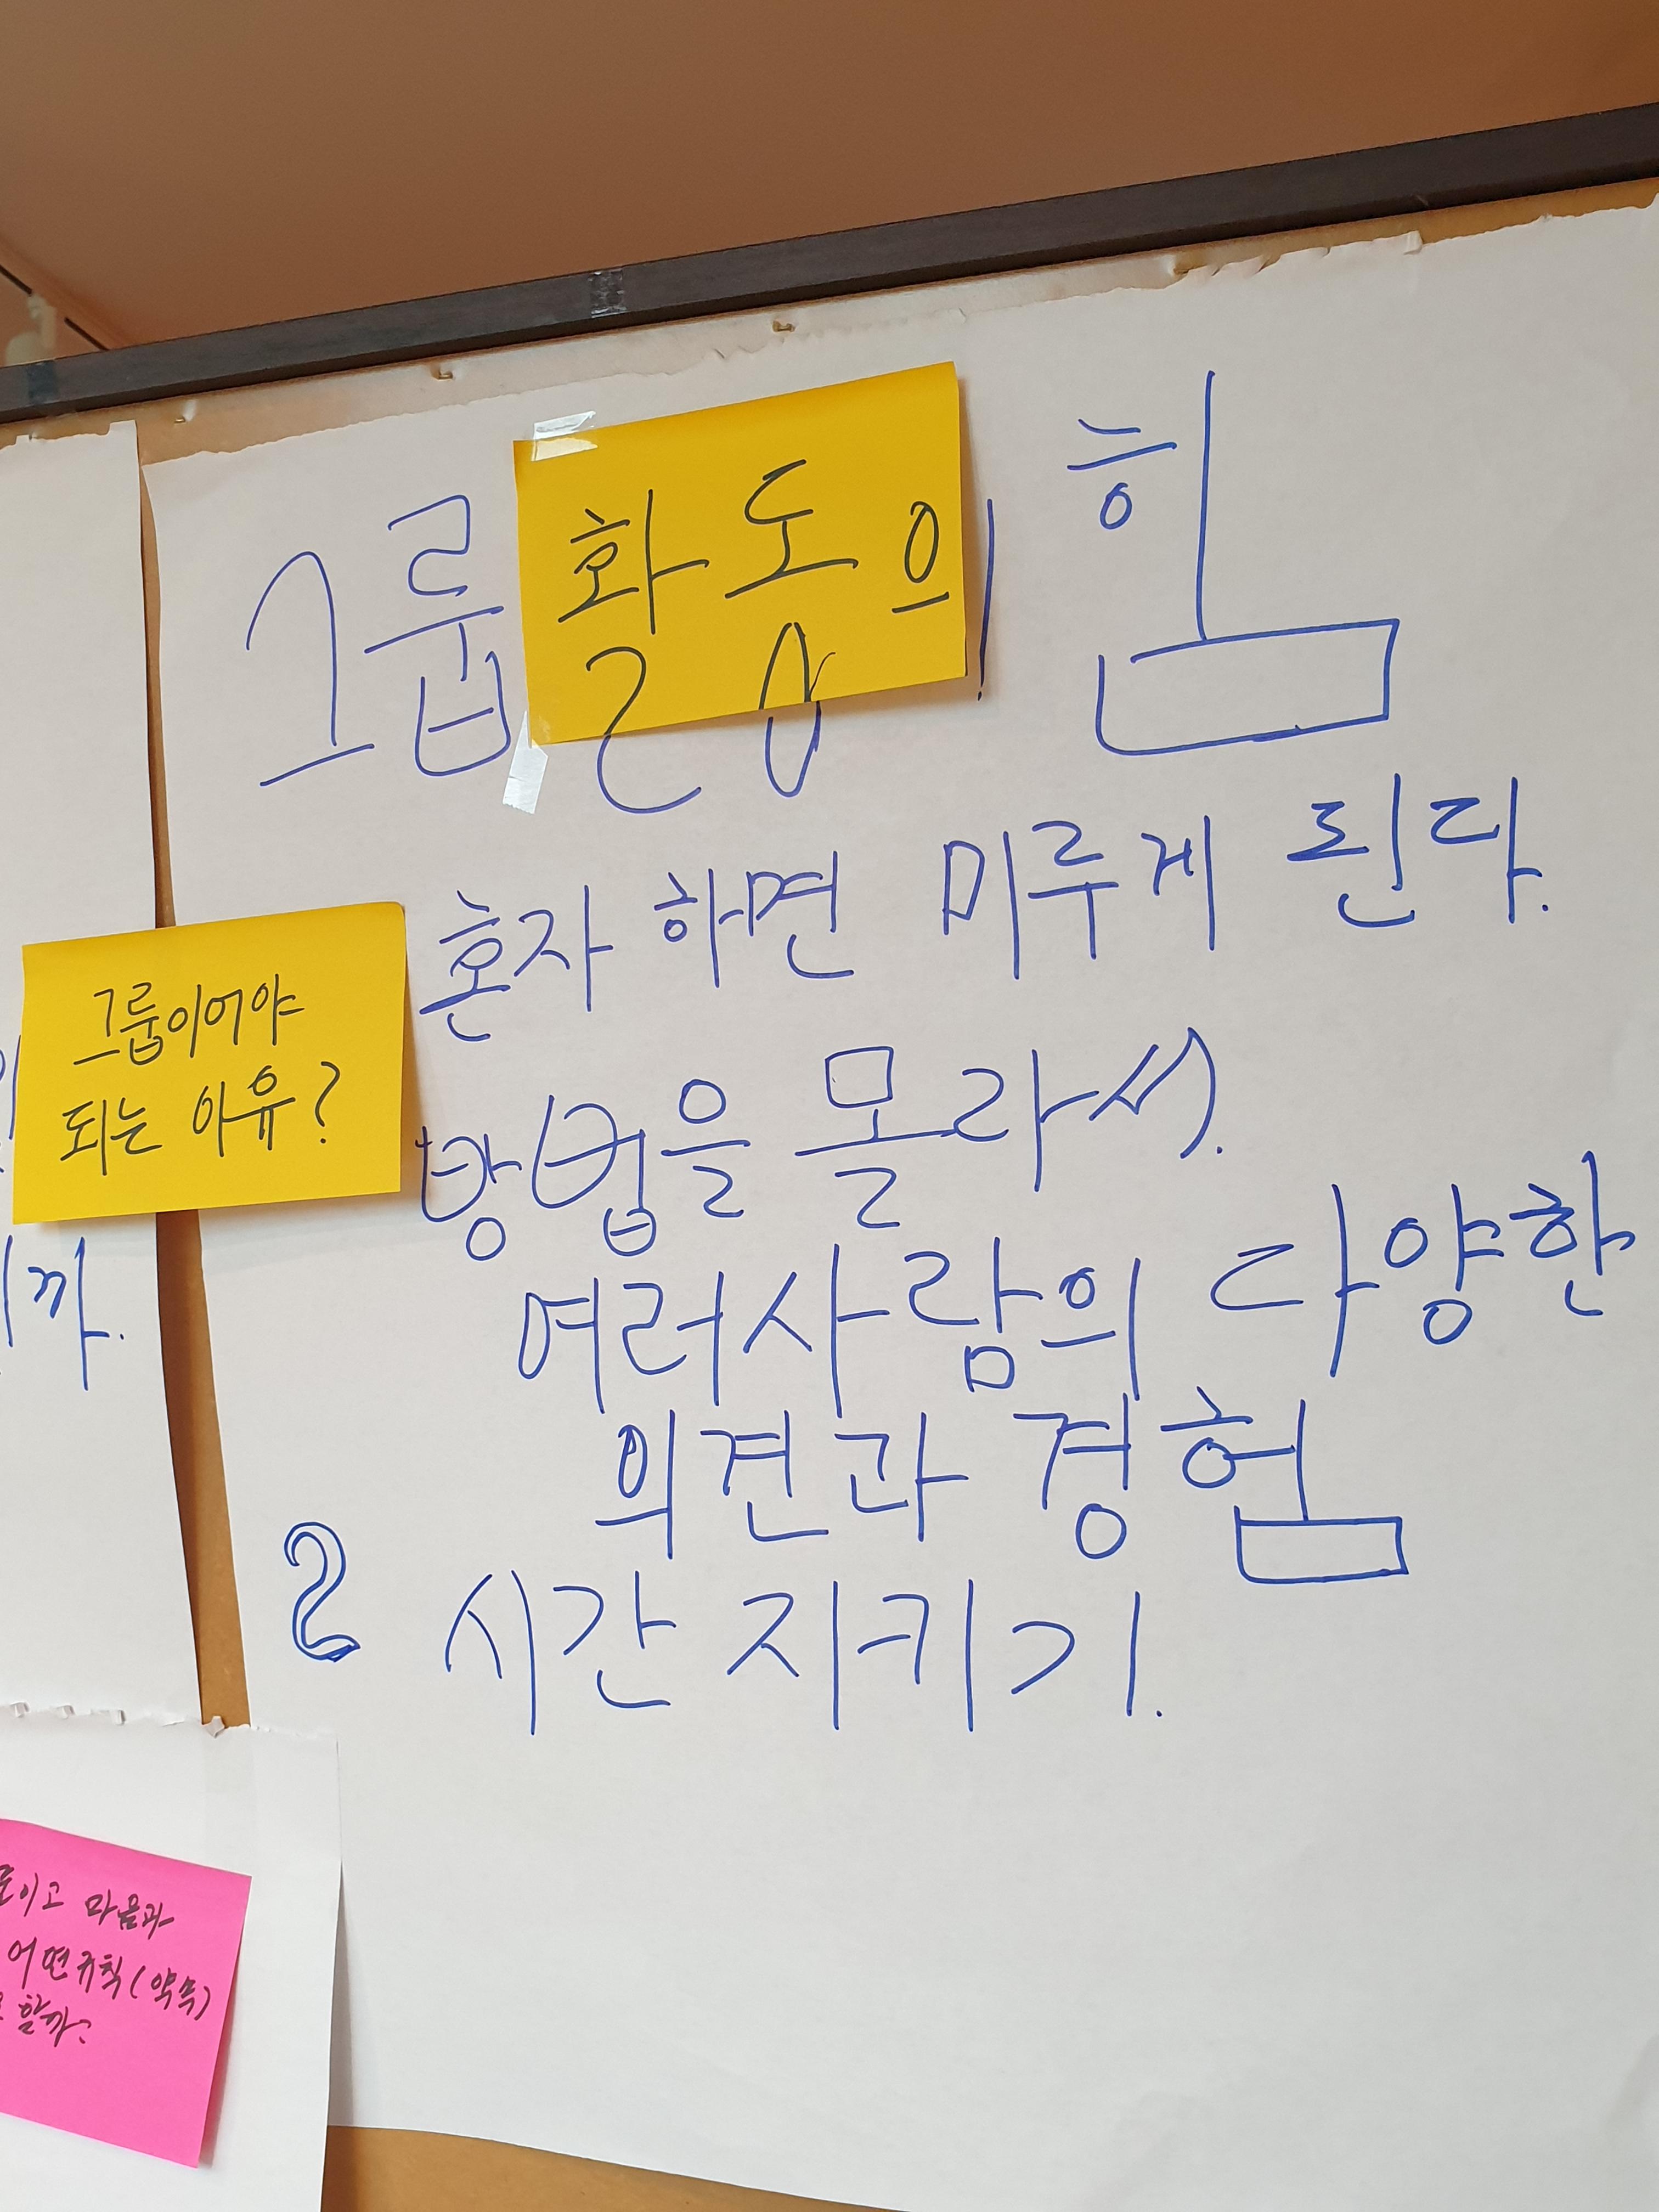 그룹활동의 힘
혼자 하면 미루게 된다.
그룹이어야
되는 이유?
방법을 몰라서.
여러사람의 다양한
의견과 경험
시간 지키기.
까.
이고 마음과
어떤규칙(약속)
할까?